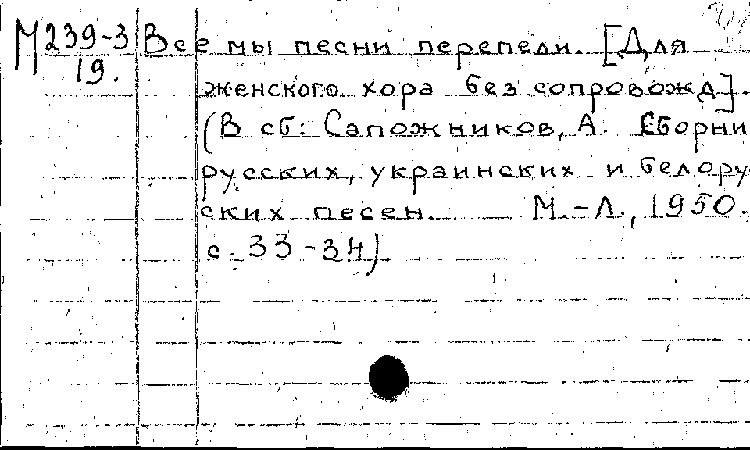 М 239-3 Все мы песни перепели. [Для
19. женского хора без сопровожд].
(В сб: Сапожников, А. Сборни
русских, украинских и белору
ских песен. М.-Л., 1950.
с. 33-34)